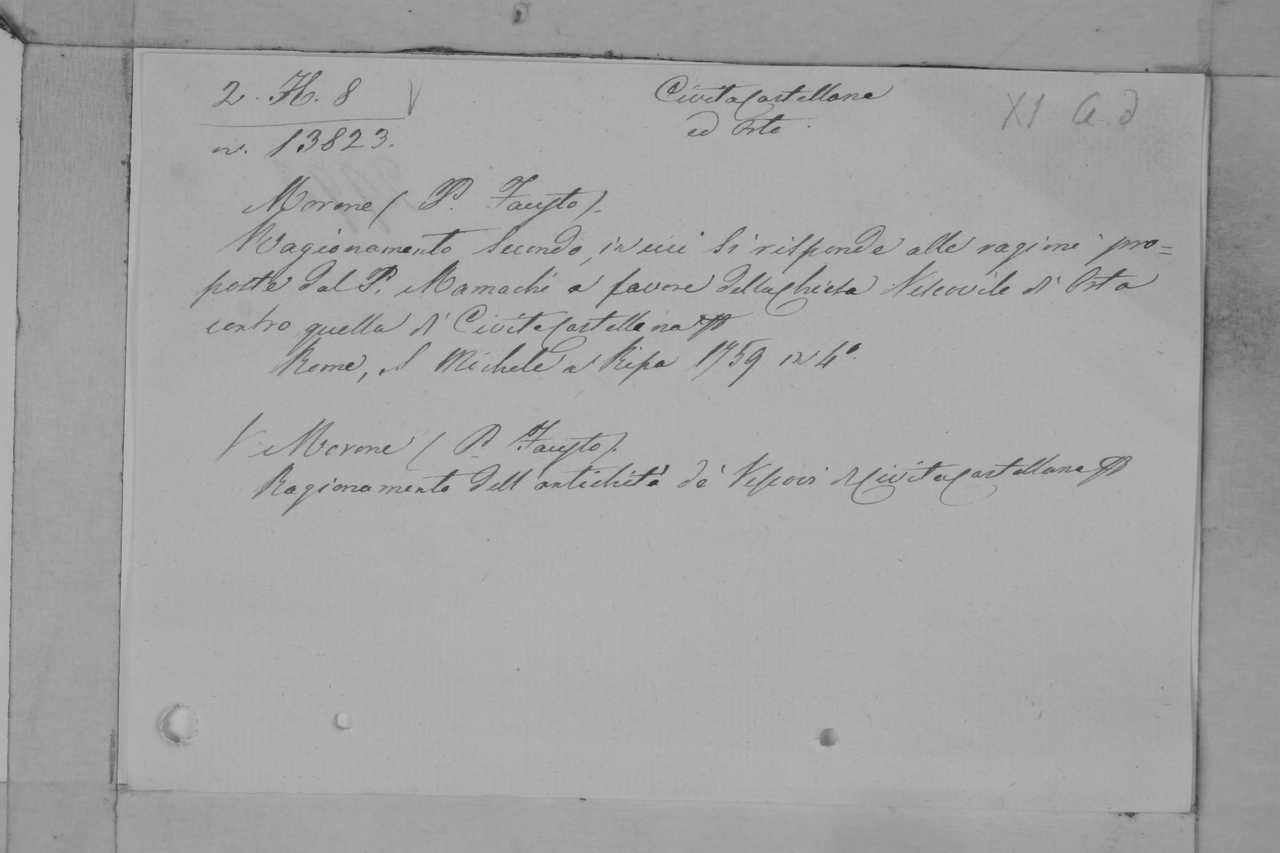 2. H. 8 V
CivitaCastellana
ed Orte.
XI a. d
n. 13823.
Morone (P. Fausto).
Ragionamento secondo, in cui si risponde alle ragioni pro=
poste dal P. Mamachi a favore della Chiesa Vescovile di Orta
contro quella di CivitaCastellana
Roma, S Michele a Ripa 1759 in 4°.
V Morone (P. Fausto).
Ragionamento dell'antichità de' Vescovi di CivitaCastellana